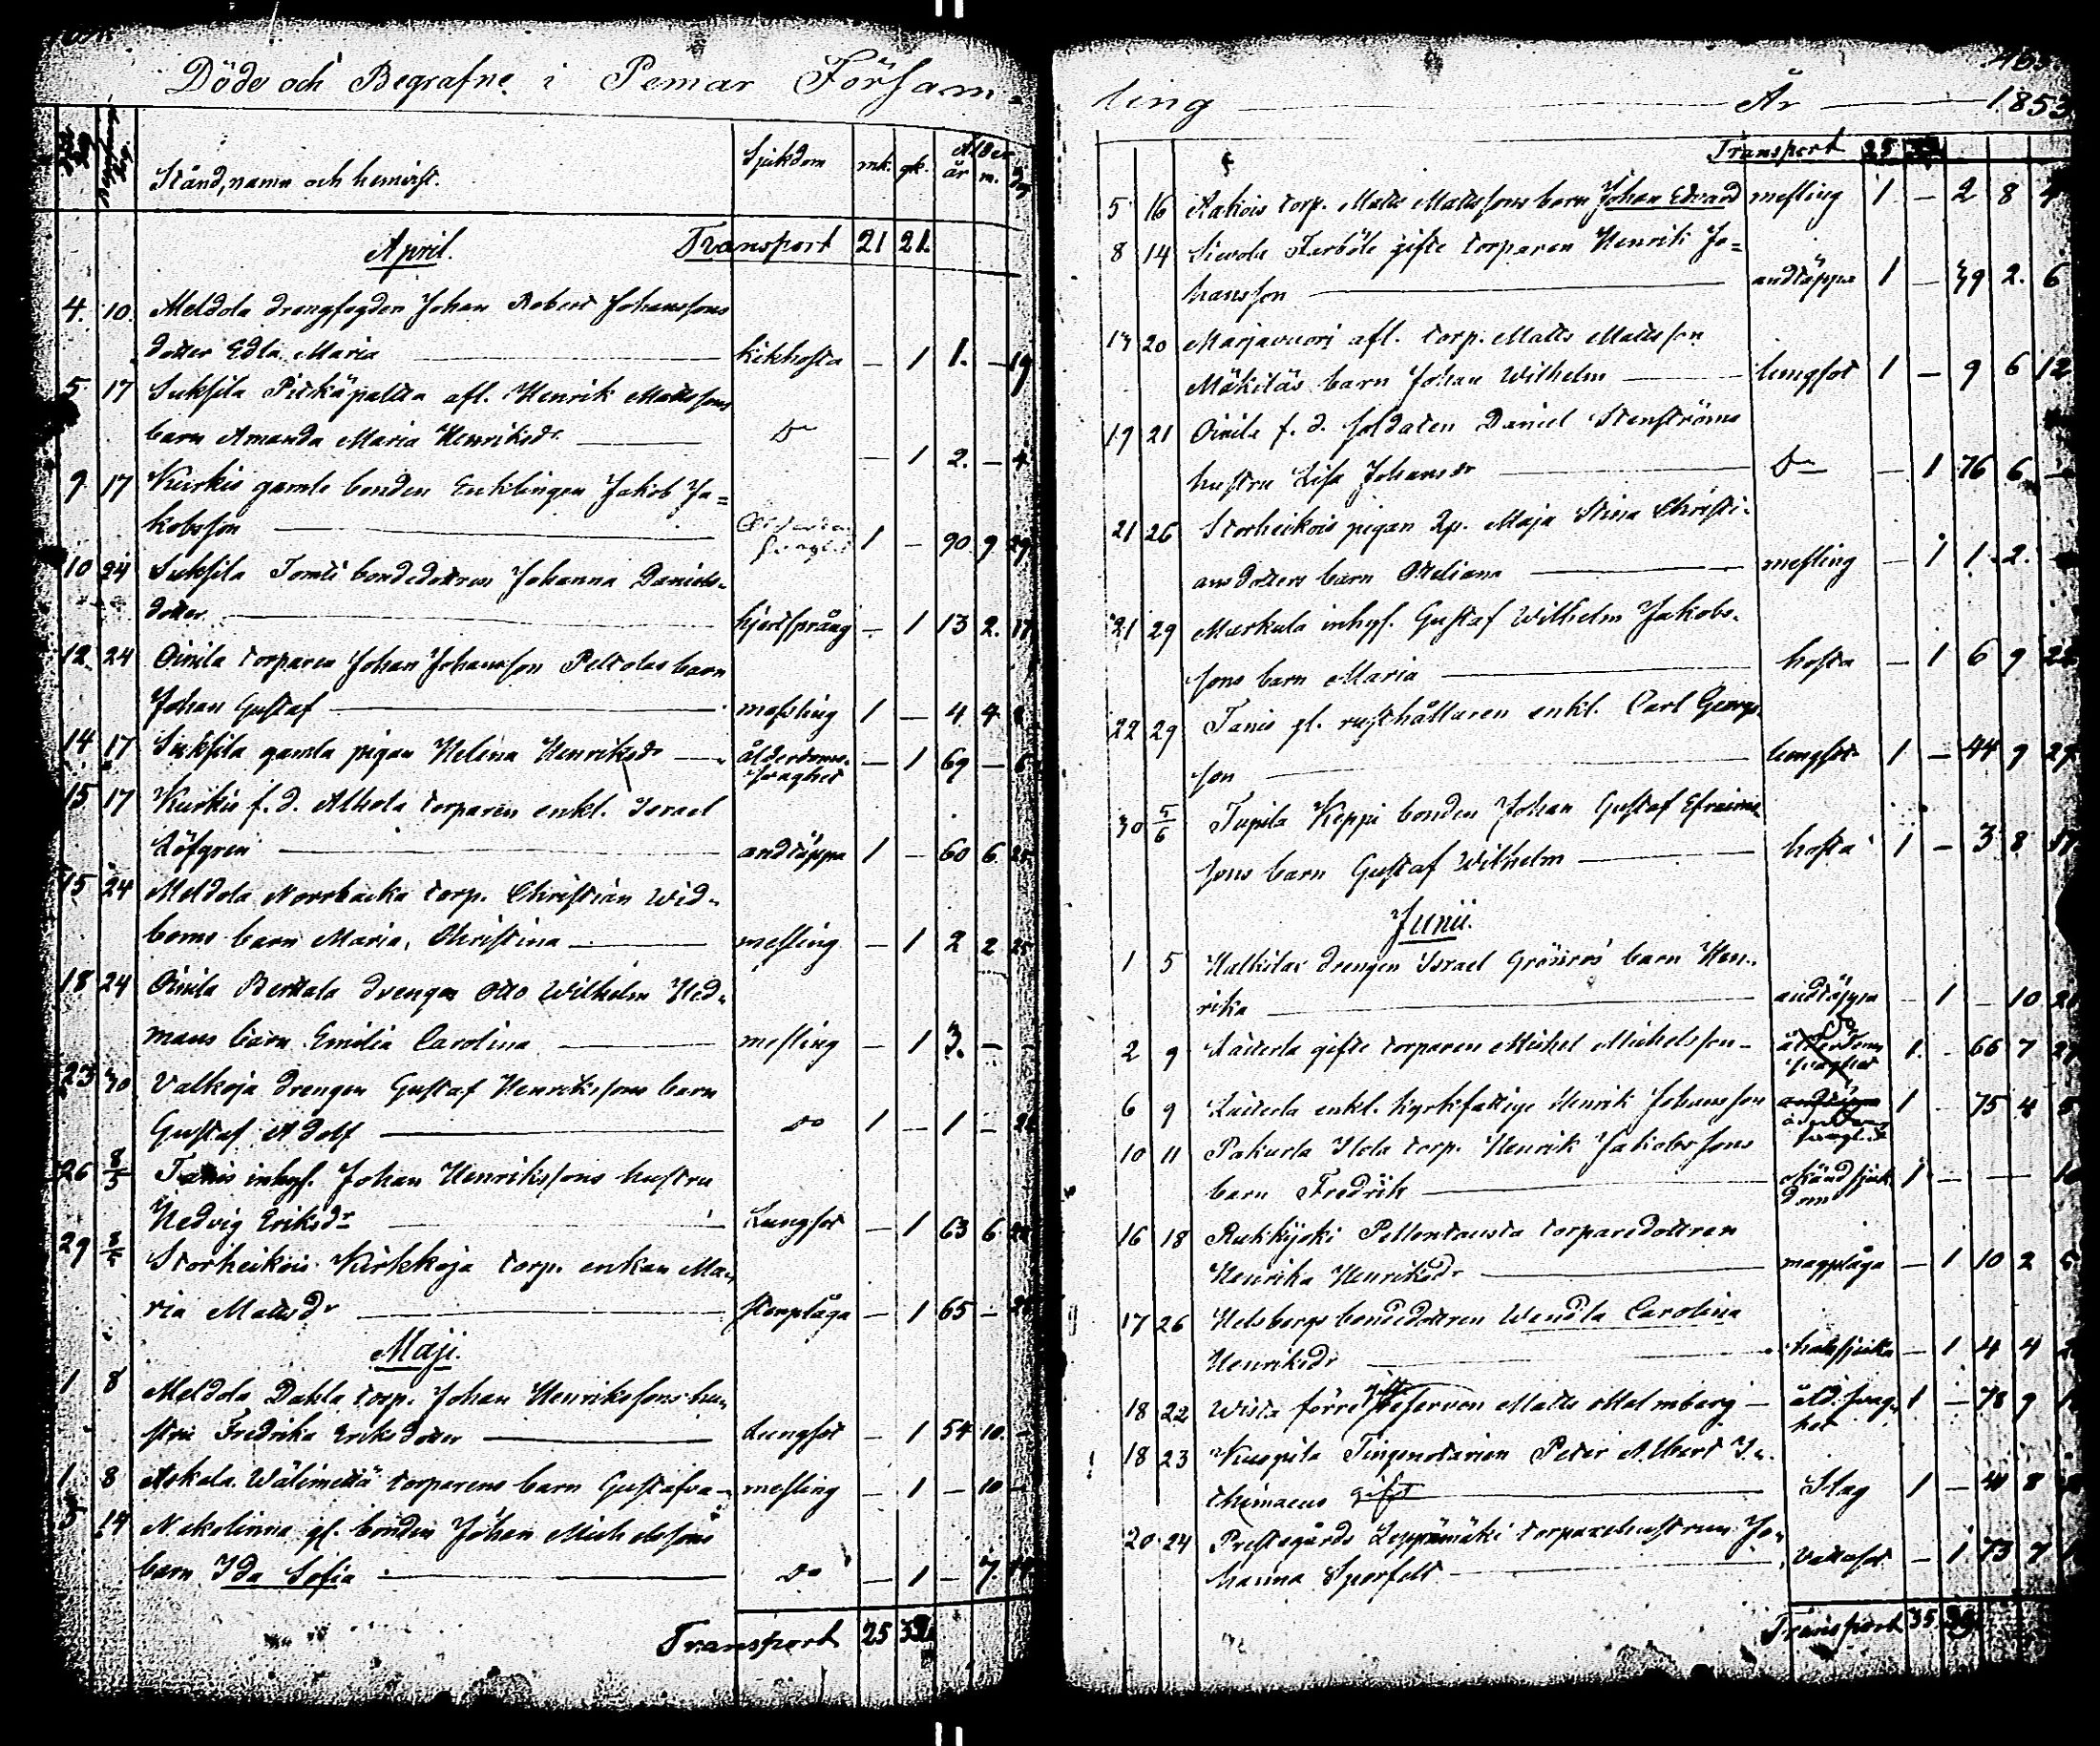 Döde och Begrafne i Pemar Församling År 1853
Stånd, namn och hemvist. Sjukdom mk. qk. Ålder år m. dag
April. Transport 21 21.
4. 10. Meldola drengfogden Johan Robert Johanssons
dotter Edla Maria kikhosta — 1 1. — 19
5. 17 Suksila Pitkäpaltta afl. Henrik Mattssons
barn Amanda Maria Henriksdr Do — 1 2. — 4
9 17 Kurkis gamle bonden Enklingen Jakob Ja=
kobsson 1 — 90 9 29
10 24 Suksila Tomti bondedottren Johanna Daniels-
dotter hjertsprång — 1 13 2. 17
12. 24 Oinila torparen Johan Johansson Peltolas barn
Johan Gustaf messling 1 — 4 4
14 17 Suksila gamla pigan Helena Henriksdr ålderdoms- svaghet — 1 69 — 6
15 17 Kurkis f. d. Alhola torparen enkl. Israel
Löfgren andtäppa 1 — 60 6 25
15 24 Meldola Norrbacka torp. Christian Wid-
boms barn Maria Christina mesling — 1 2 2 25
18 24 Oinila Berttala drengen Otto Wilhelm Hed-
mans barn Emilia Carolina mesling — 1 3. — —
23 30 Valkoja drengen Gustaf Henrikssons barn
Gustaf Adolf do 1 — 1 —
26 8/5 Tanis inhys. Johan Henrikssons hustru
Hedvig Eriksdr Lungsot — 1 63 6
29 8/5 Storheikois Kirkkoja torp. enkan Ma-
ria Mattsdr — 1 65 —
Maji.
1 8 Meldola Dahla torp. Johan Henrikssons hu-
stru Fredrika Eriksdotter Lungsot — 1 54 10. —
1 8 Askala Wälimettä torparens barn Gustafva mesling — 1 — 10 —
5 19 Nakolinna gl. bonden Johan Michelssons
barn Ida Sofia do — 1 — 7.
Transport 25 32
Transport 25 32
5 16 Rakois torp. Matts Mattssons barn Johan Edvard mesling 1 — 2 8 4
8 14 Sievola Farböle gifte torparen Henrik Jo=
hansson andtäppa 1 — 39 2. 6
13 20 Marjavuori afl. torp. Matts Mattsson
Mäkiläs barn Johan Wilhelm lungsot 1 — 9 6 12
19 21 Oinila f. d. soldaten Daniel Stenströms
hustru Lisa Johansdr Do — 1 76 6
21 26 Storheikois pigan Maja Stina Christi-
ansdotters barn Otteliana mesling — 1 1 2.
21 29 Markula inhys. Gustaf Wilhelm Jakobs-
sons barn Maria hosta — 1 6 9 22
22 29 Tanis gl. rusthållaren enkl. Carl Georgs-
son lungsot 1 — 44 9 29
30 5/6 Tupila Keppi bonden Johan Gustaf Efraims-
sons barn Gustaf Wilhelm hosta 1 — 3 8
Junii.
1 5 Halkilax drengen Israel Grönros barn Hen-
rika andtäppa — 1 — 10
2 9 gifte torparen Michel Michelsson do 1. — 66 7
6 9 enkl. kyrkfattige Henrik Johansson 1 — 75 4
10 11 Pakurla torp. Henrik Jakobssons
barn Fredrik okänd sjuk dom 1 — —
16 18 Rukkijoki Pellontausta torparedottren
Henrika Henriksdr magplåga — 1 10 2
17 26 Helsbergs bondedottren Wendla Carolina
Henriksdr halssjuka — 1 4 4
18 22 Wista förre Matts Malmberg åld. svag- het 1 — 78 9
18 23 Kuspila Tingsnotarien Peter Albert I-
thimaeus gift Slag 1 — 41 8
20 24 Prestegårds Leppämäki torparehustrun Jo-
hanna Sporfelt vattsot — 1 73 7
Transport 35 39.